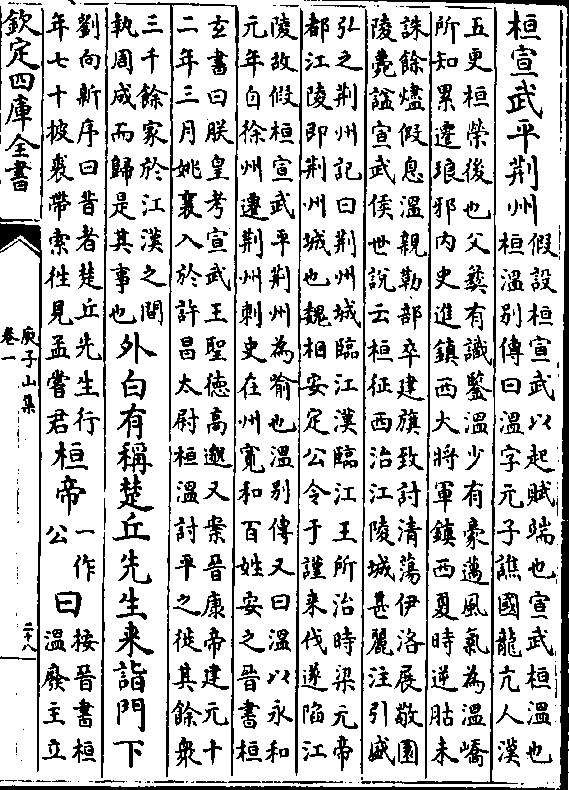 桓宣武平荆州
假設桓宣武以起賦端也宣武桓溫也
桓溫別傳曰溫字元子譙國龍亢人漢
五更桓榮後也父彝有識鑒溫少有豪邁風氣為溫嶠
所知累遷琅邪内史進鎮西大將軍鎮西夏時逆胡未
誅餘燼假息溫親勒部卒建旗致討清蕩伊洛展敬園
陵薨諡宣武侯世說云桓征西治江陵城甚麗注引盛
弘之荆州記曰荆州城臨江漢臨江王所治時梁元帝
都江陵即荆州城也魏相安定公令于謹来伐遂陷江
陵故假桓宣武平荆州為喻也溫別傳又曰溫以永和
元年自徐州遷荆州刺史在州寛和百姓安之晉書桓
玄書曰朕皇考宣武王聖德高邈又案晉康帝建元十
二年三月姚襄入於許昌太尉桓溫討平之徙其餘衆
三千餘家於江漢之間
執周成而歸是其事也
外白有稱楚丘先生来詣門下
劉向新序曰昔者楚丘先生行
年七十披裘帶索往見孟嘗君
桓帝
一作
公
曰
按晉書桓
溫廢主立
欽定四庫全書
庾子山集
卷一
二十八